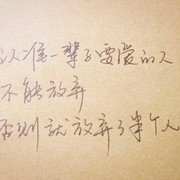 认准一辈子要爱的人
不能放弃
否则就放弃了半个人